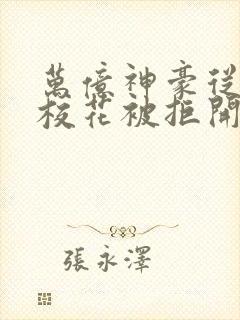 萬億神豪從
校花被拒開
張永澤